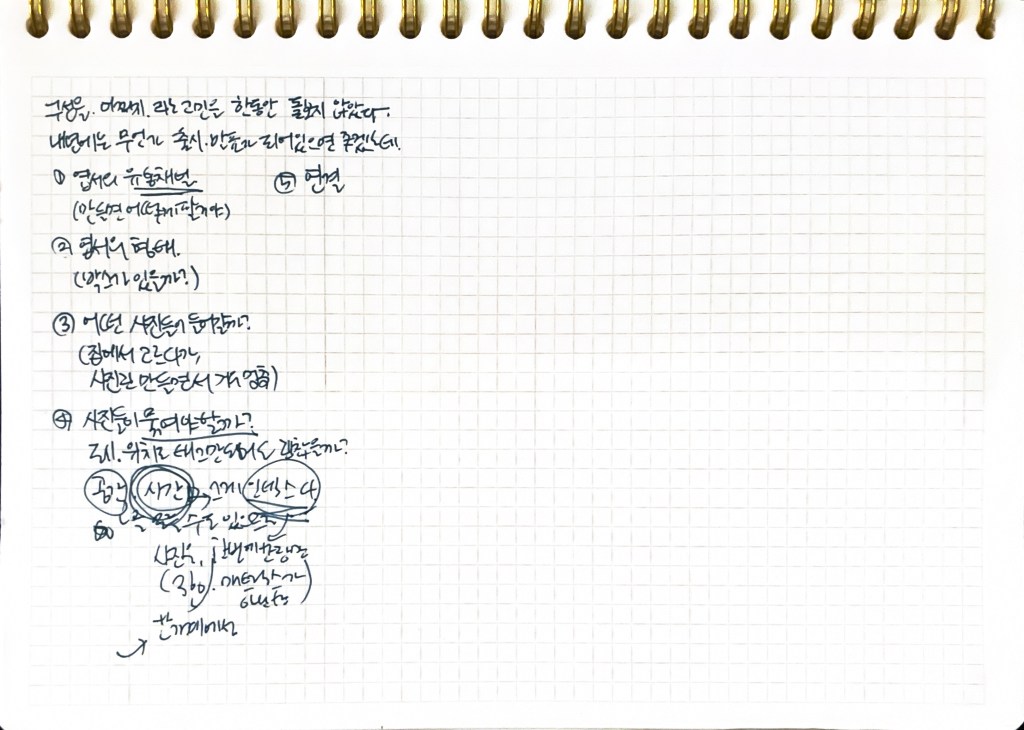 구성을. 어찌할지. 라는 고민을 한동안 돌보지 않았다.
내년에는 무언가 출시.반포가 되어있으면 좋겠는데.
① 엽서의 유통채널
(만들면 어떻게 팔거야)
② 엽서의 형태.
(박스가 있을까?)
③ 어떤 사진들이 들어갈까?
(집에서 고르다가,
사진관 만들면서 거의 멈춤)
④ 사진들이 묶여야할까?
도시.위치로 테그만되어도 괜찮을까?
공간, 시간 그게 인덱스다
수도 있으
사진은, 한번에
(36).
한가에서
⑤ 연결